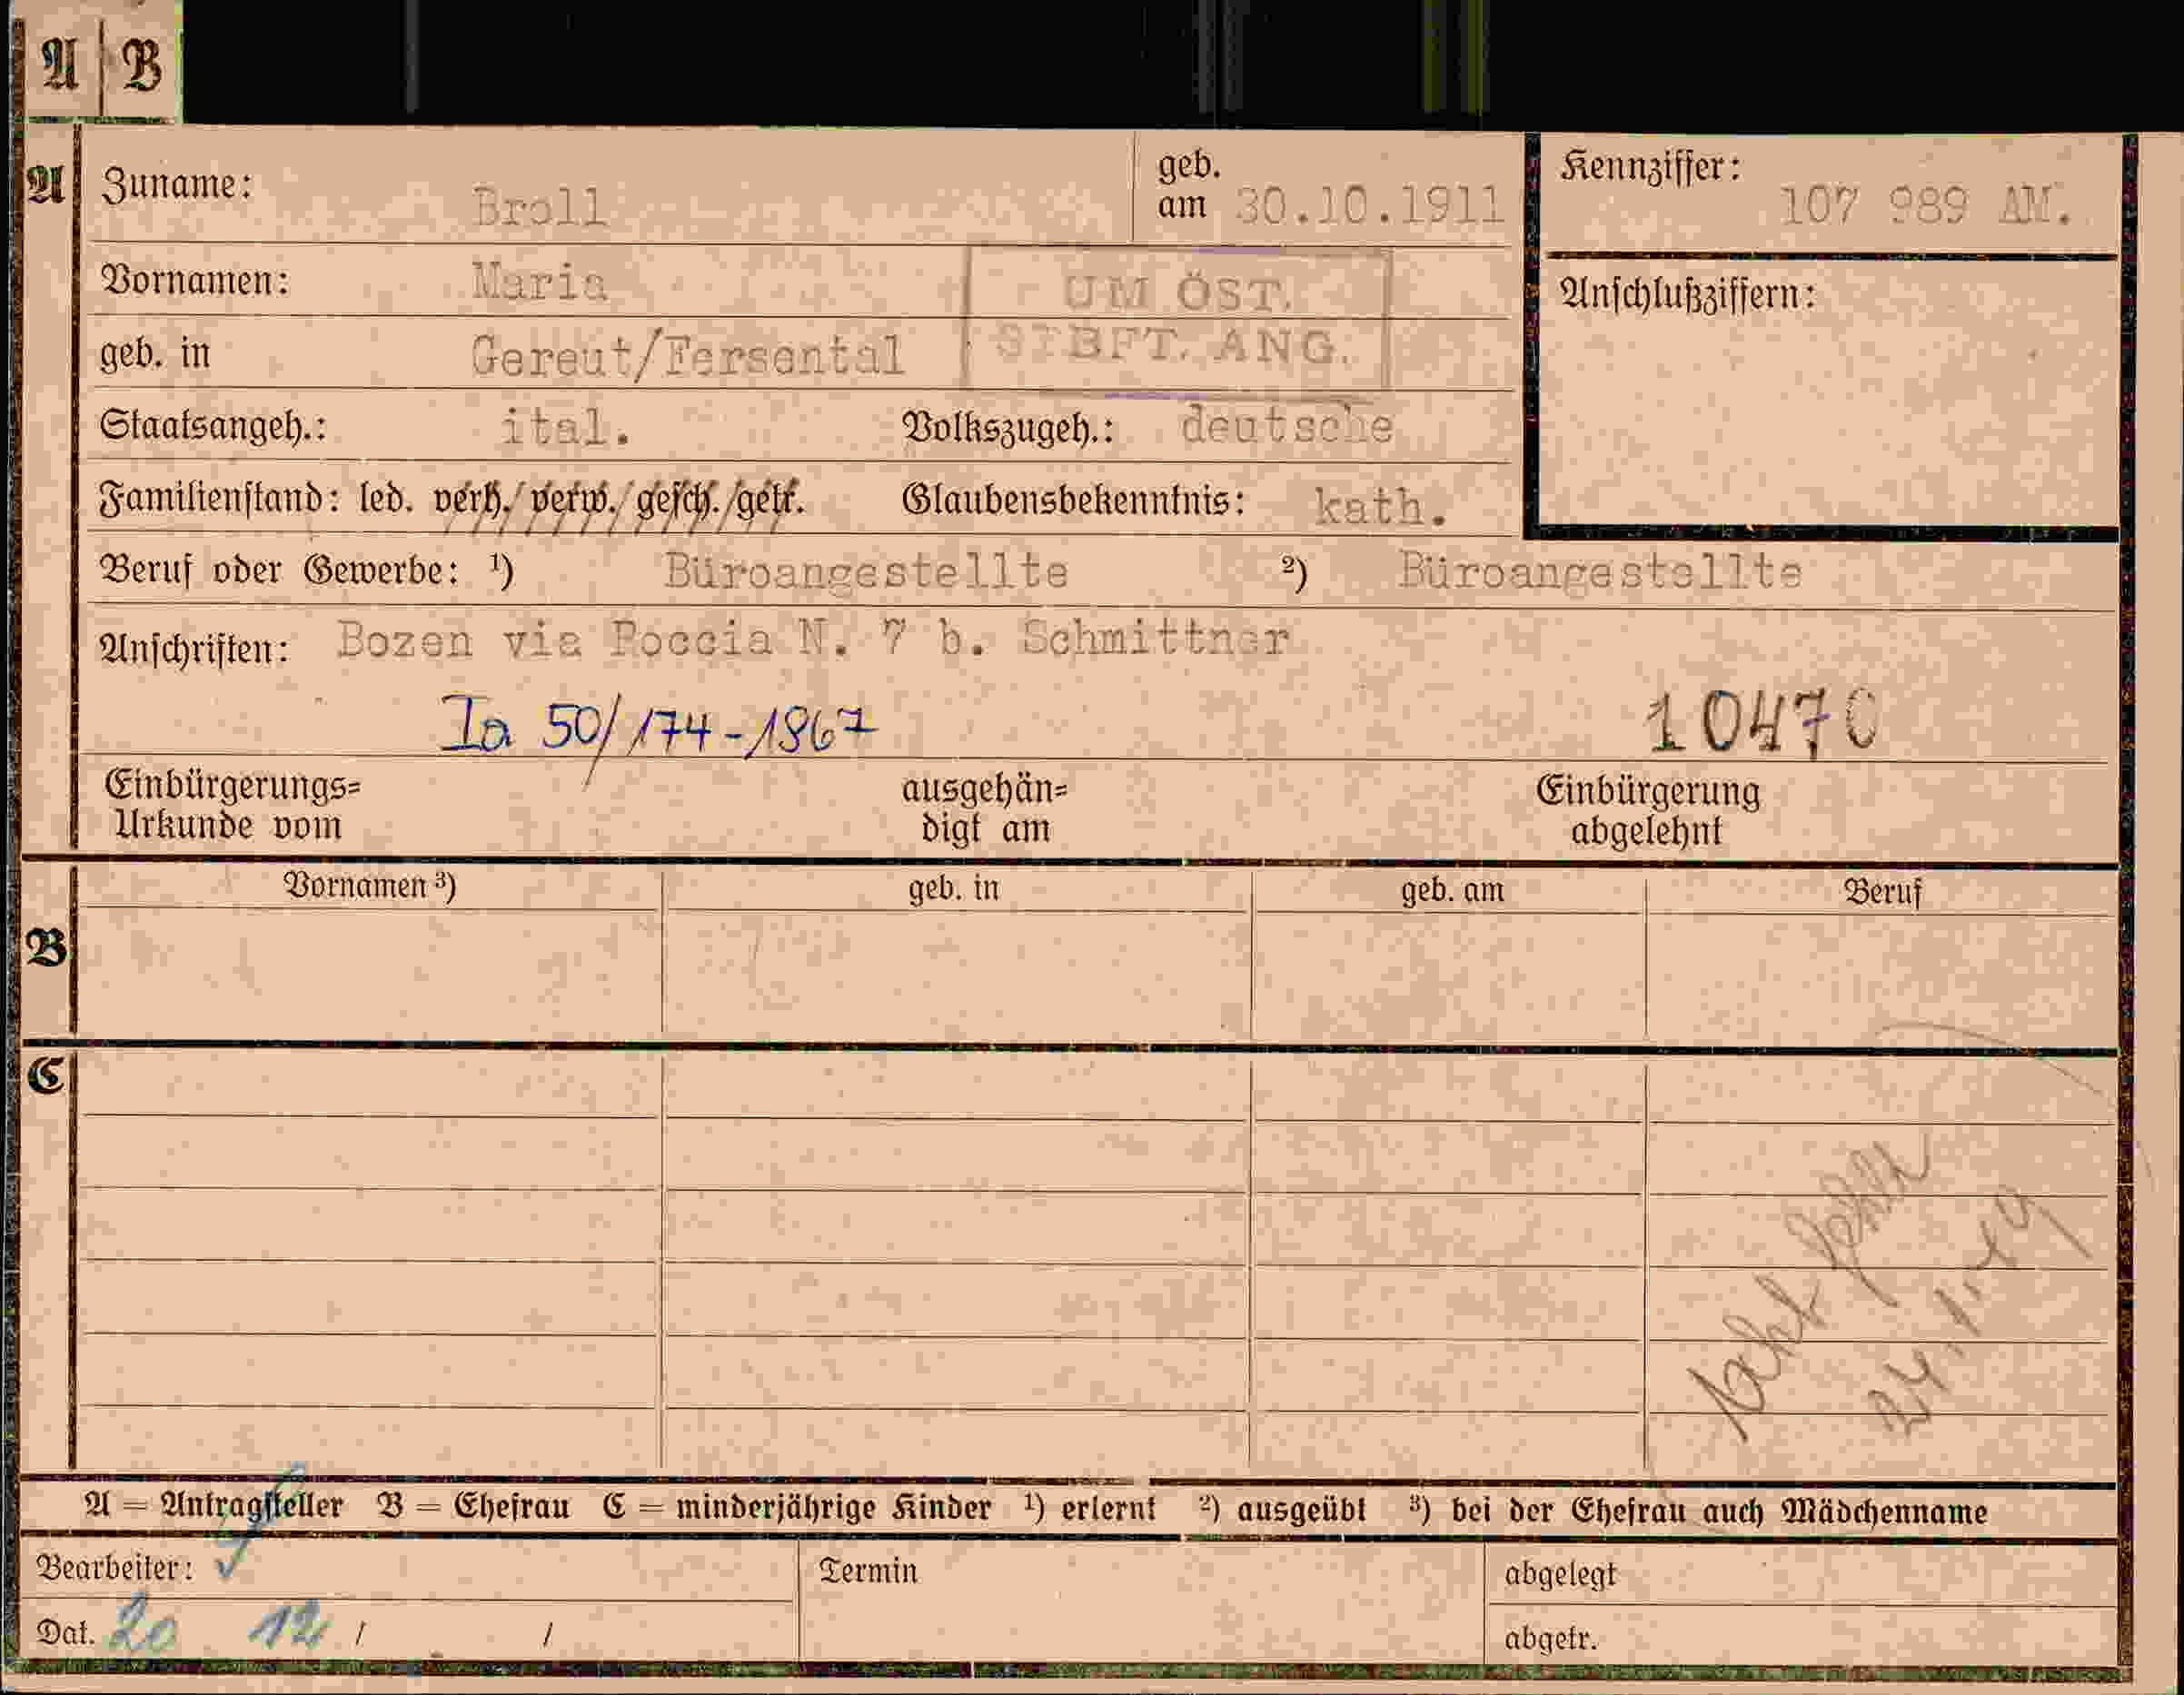 A B
A Zuname: Broll geb. am 30.10.1911 Kennziffer: 107 989 AM.
Vornamen: Maria UM ÖST. Anschlußziffern:
geb. in Gereut/Fersental STBFT. ANG.
Staatsangeh.: ital. Volkszugeh.: deutsche
Familienstand: led. verh./verw./gesch./getr. Glaubensbekenntnis: kath.
Beruf oder Gewerbe: ¹) Büroangestellte ²) Büroangestellte
Anschriften: Bozen via Roccia N. 7 b. Schmittner
Ia 50/174-1967 10470
Einbürgerungs= ausgehän= Einbürgerung
Urkunde vom digt am abgelehnt
Vornamen ³) geb. in geb. am Beruf
B
C
Akt fehlt
24.1.49
A = Antragsteller B = Ehefrau C = minderjährige Kinder ¹) erlernt ²) ausgeübt ³) bei der Ehefrau auch Mädchenname
Bearbeiter: Termin abgelegt
Dat. 20 12 / / abgetr.